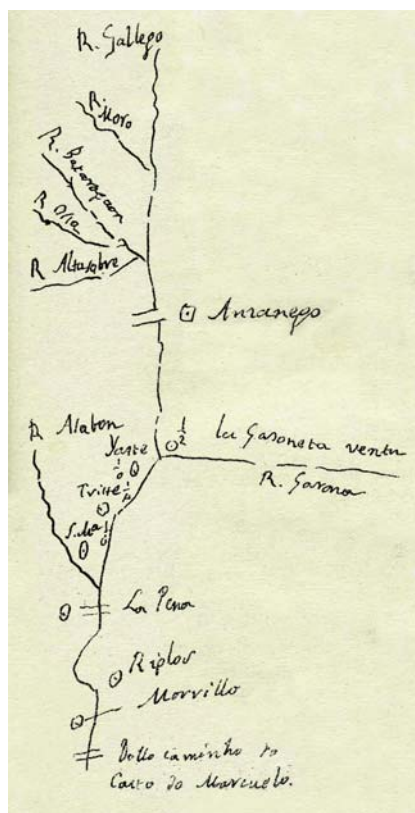 R. Gallego
R. Moro
R. Bataragaon
R Osia
R Altasobre
Anzanego
R Alabon
1/2
La Garoneta venta
R. Garona
Yaste
Triste 1/4
S. Ma
La Pena
Riplos
Morrillo
Dello caminho to
Casto do Marcuelo.